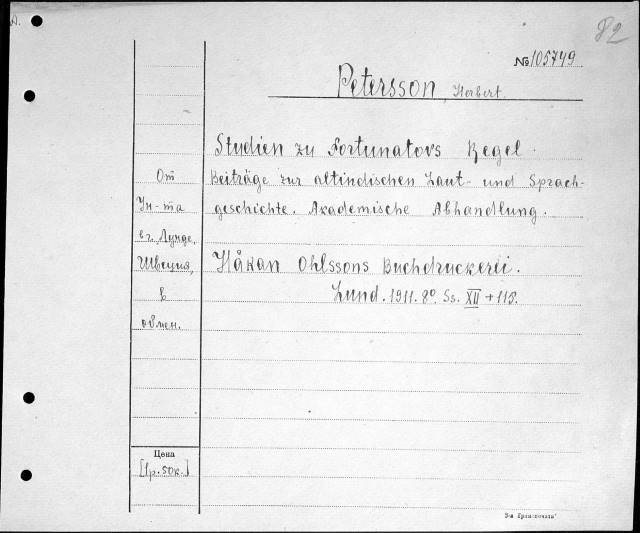 82
№ 105749
Petersson, Herbert.
Studien zu Fortunatovs Regel.
Beiträge zur altindischen Laut- und Sprach-
geschichte. Akademische Abhandlung.
Håkan Ohlssons Buchdruckerei.
Lund. 1911. 8°. Ss. XII + 115.
От
Ун-та
в г. Лунде,
Швеция,
в
обмен.
Цена
[1р.50к.]